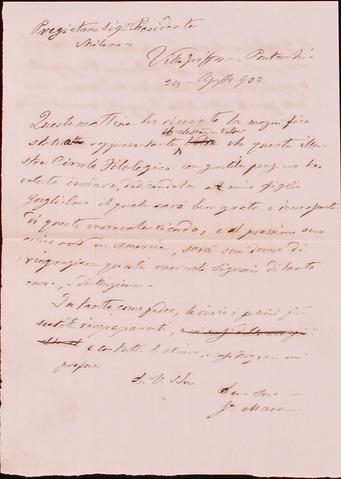 Pregiatmo Sigr. Presidente
Milano
Villa Griffone - Pontecchio
24 - Agosto 902
Questa mattina ho ricevuto la magnifica
rappresentante che questo illu-
stre Circolo Filologico con gentile pensiero ha
voluto inviare, dedicandola al mio figlio
Guglielmo il quale sarà ben grato e
di questo onorevole ricordo, e al prossimo suo
arrivo in America, sarà suo dovere di
ringraziare questi onorevoli Signori di tanto
onore, e distinzione -
Intanto come padre, le invio i più
sentiti ringraziamenti, e
e con tutta la stima, mi
pregio
D. V. S. Illma
Dev. Servo